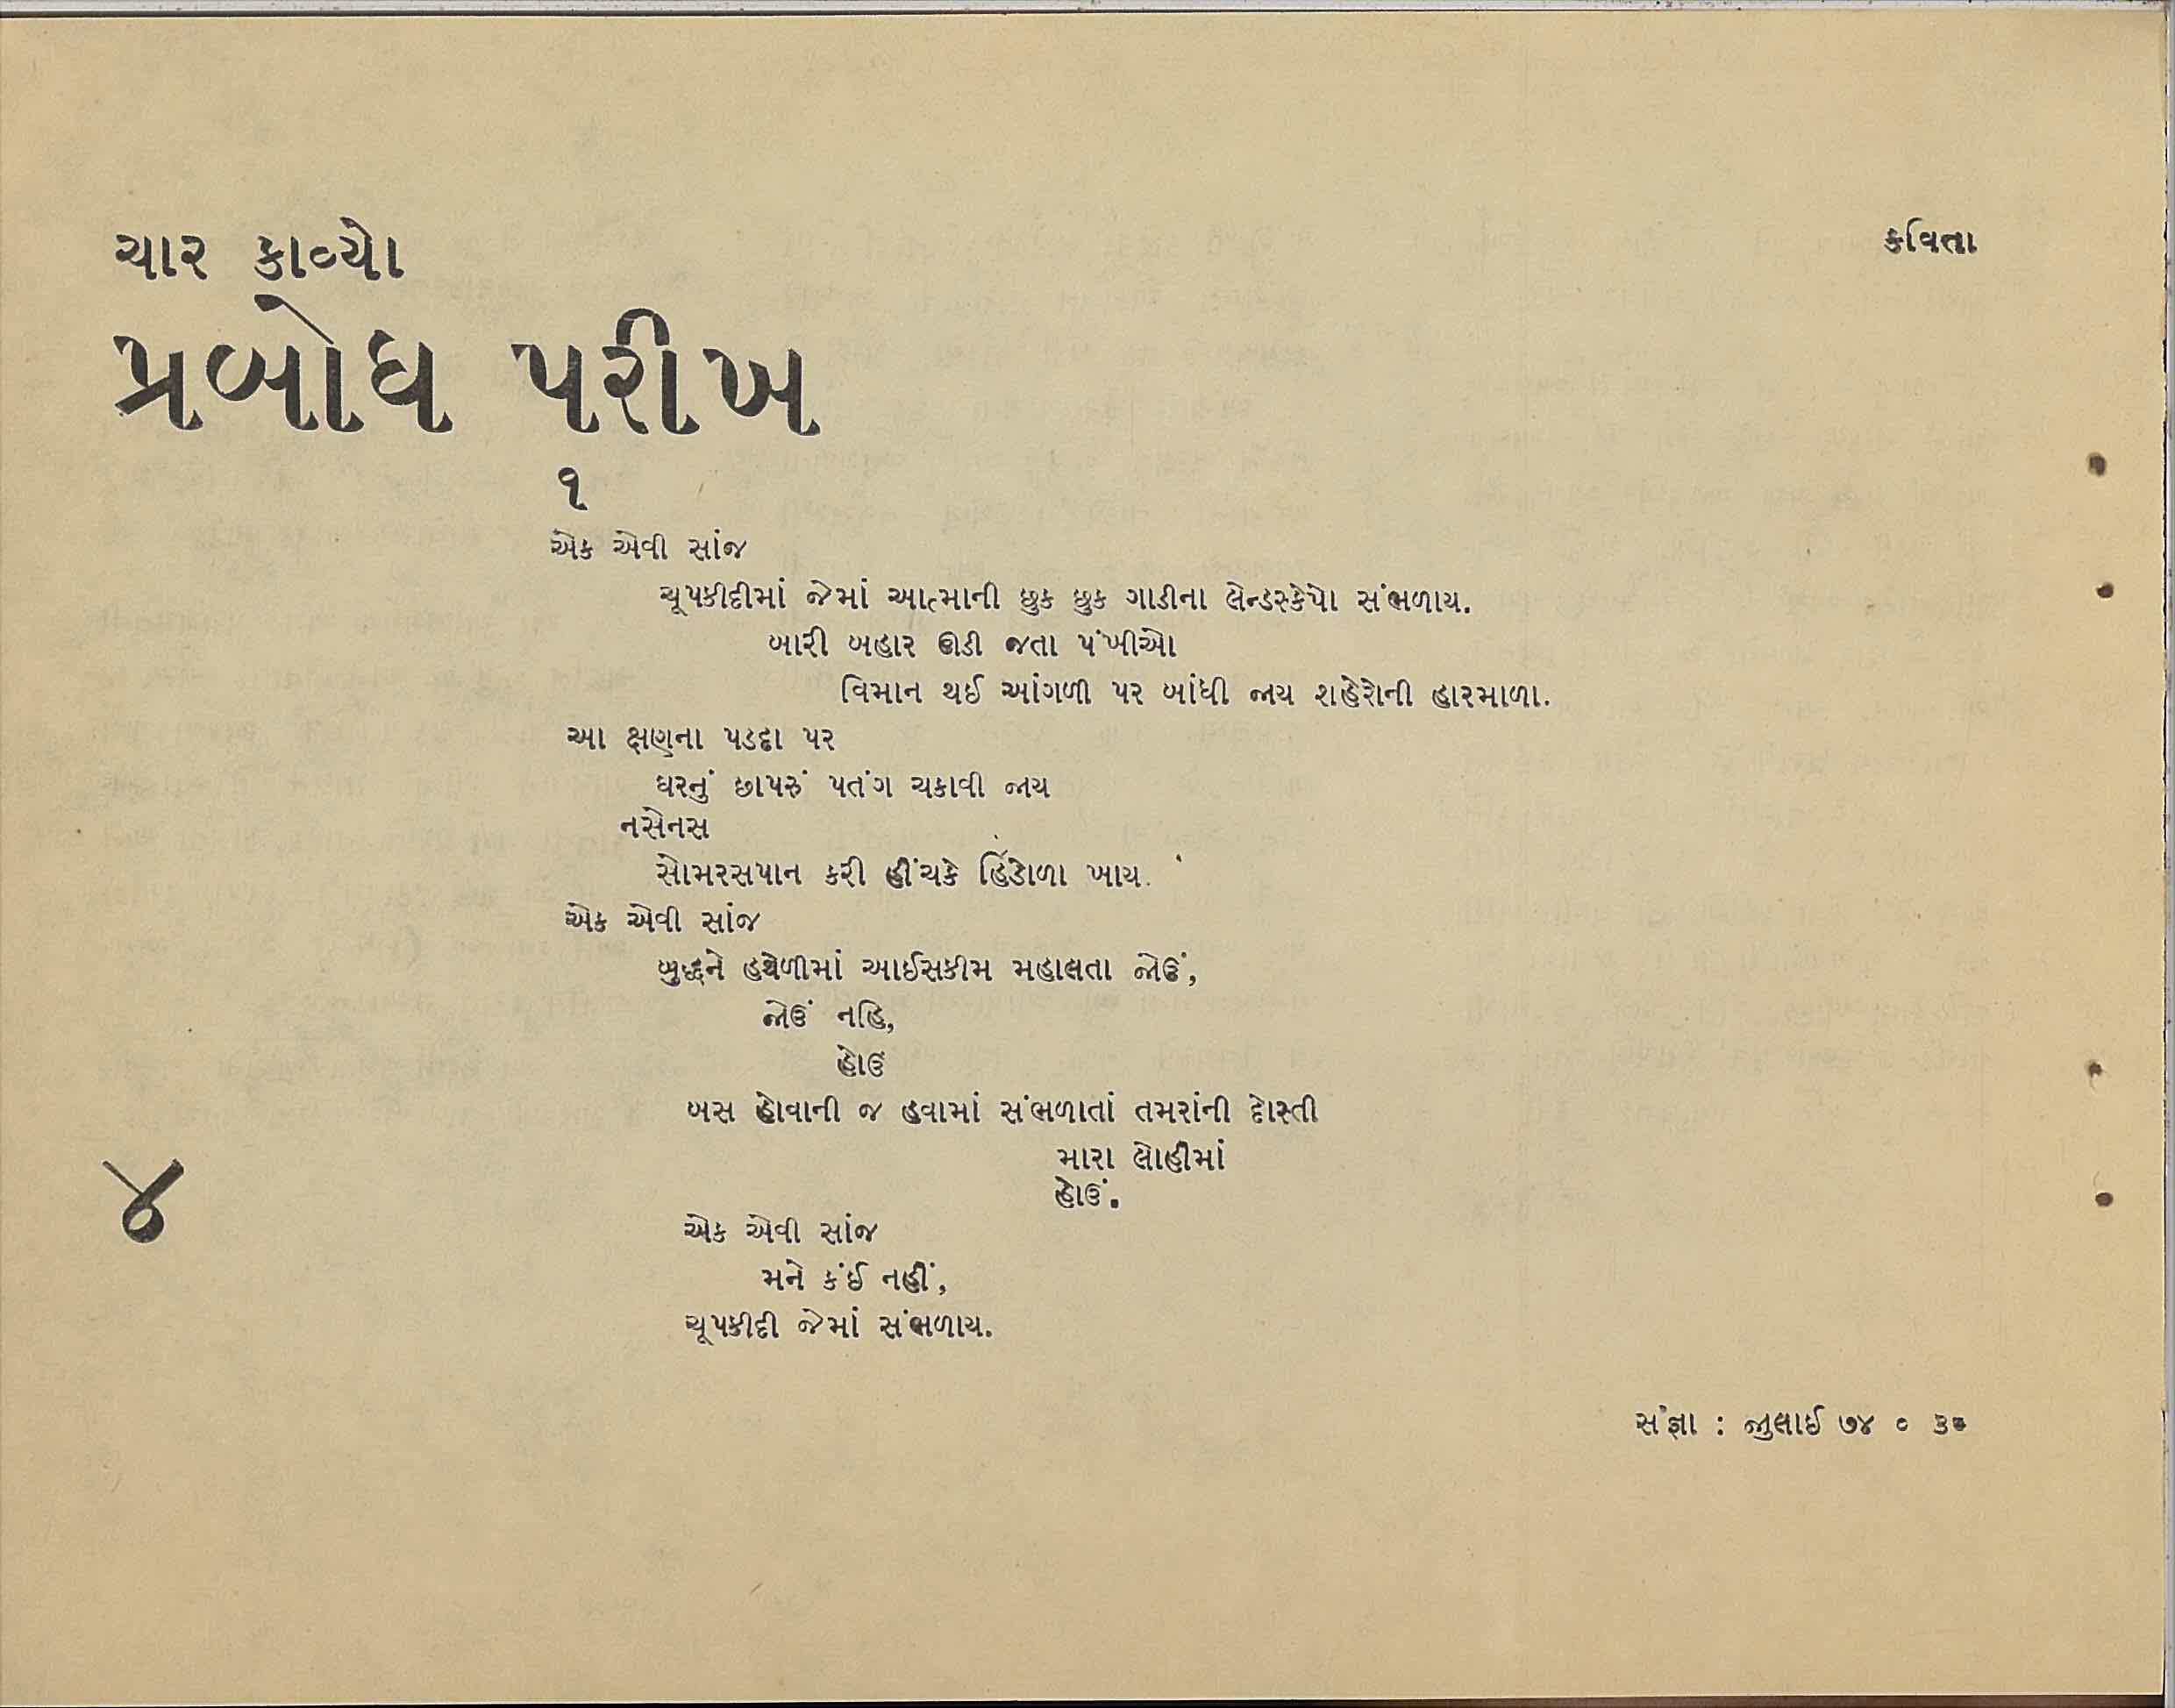 ચાર કાવ્યો
કવિતા
પ્રબોધ પરીખ
૧
એક એવી સાંજ
ચૂપકીદીમાં જેમાં આત્માની છુક છુક ગાડીના લેન્ડસ્કેપો સંભળાય.
બારી બહાર ઊડી જતા પંખીઓ
વિમાન થઈ આંગળી પર બાંધી જાય શહેરોની હારમાળા.
આ ક્ષણના પડદા પર
ઘરનું છાપરું પતંગ ચકાવી જાય
નસેનસ
સોમરસપાન કરી હીંચકે હિંડોળા ખાય.
એક એવી સાંજ
બુદ્ધને હથેળીમાં આઈસક્રીમ મહાલતા જોઉં,
જોઉં નહિ,
હોઉં
બસ હોવાની જ હવામાં સંભળાતાં તમરાંની દોસ્તી
મારા લોહીમાં
હોઉં.
એક એવી સાંજ
મને કંઈ નહીં,
ચૂપકીદી જેમાં સંભળાય.
૪
સંજ્ઞા : જુલાઈ ૭૪ ૦